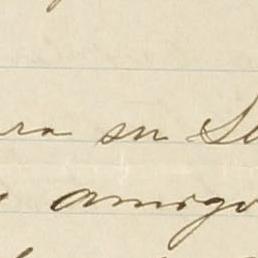 ra su Se
amigo